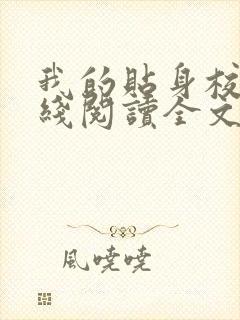 我的貼身校
綫閱讀全文
風曉曉